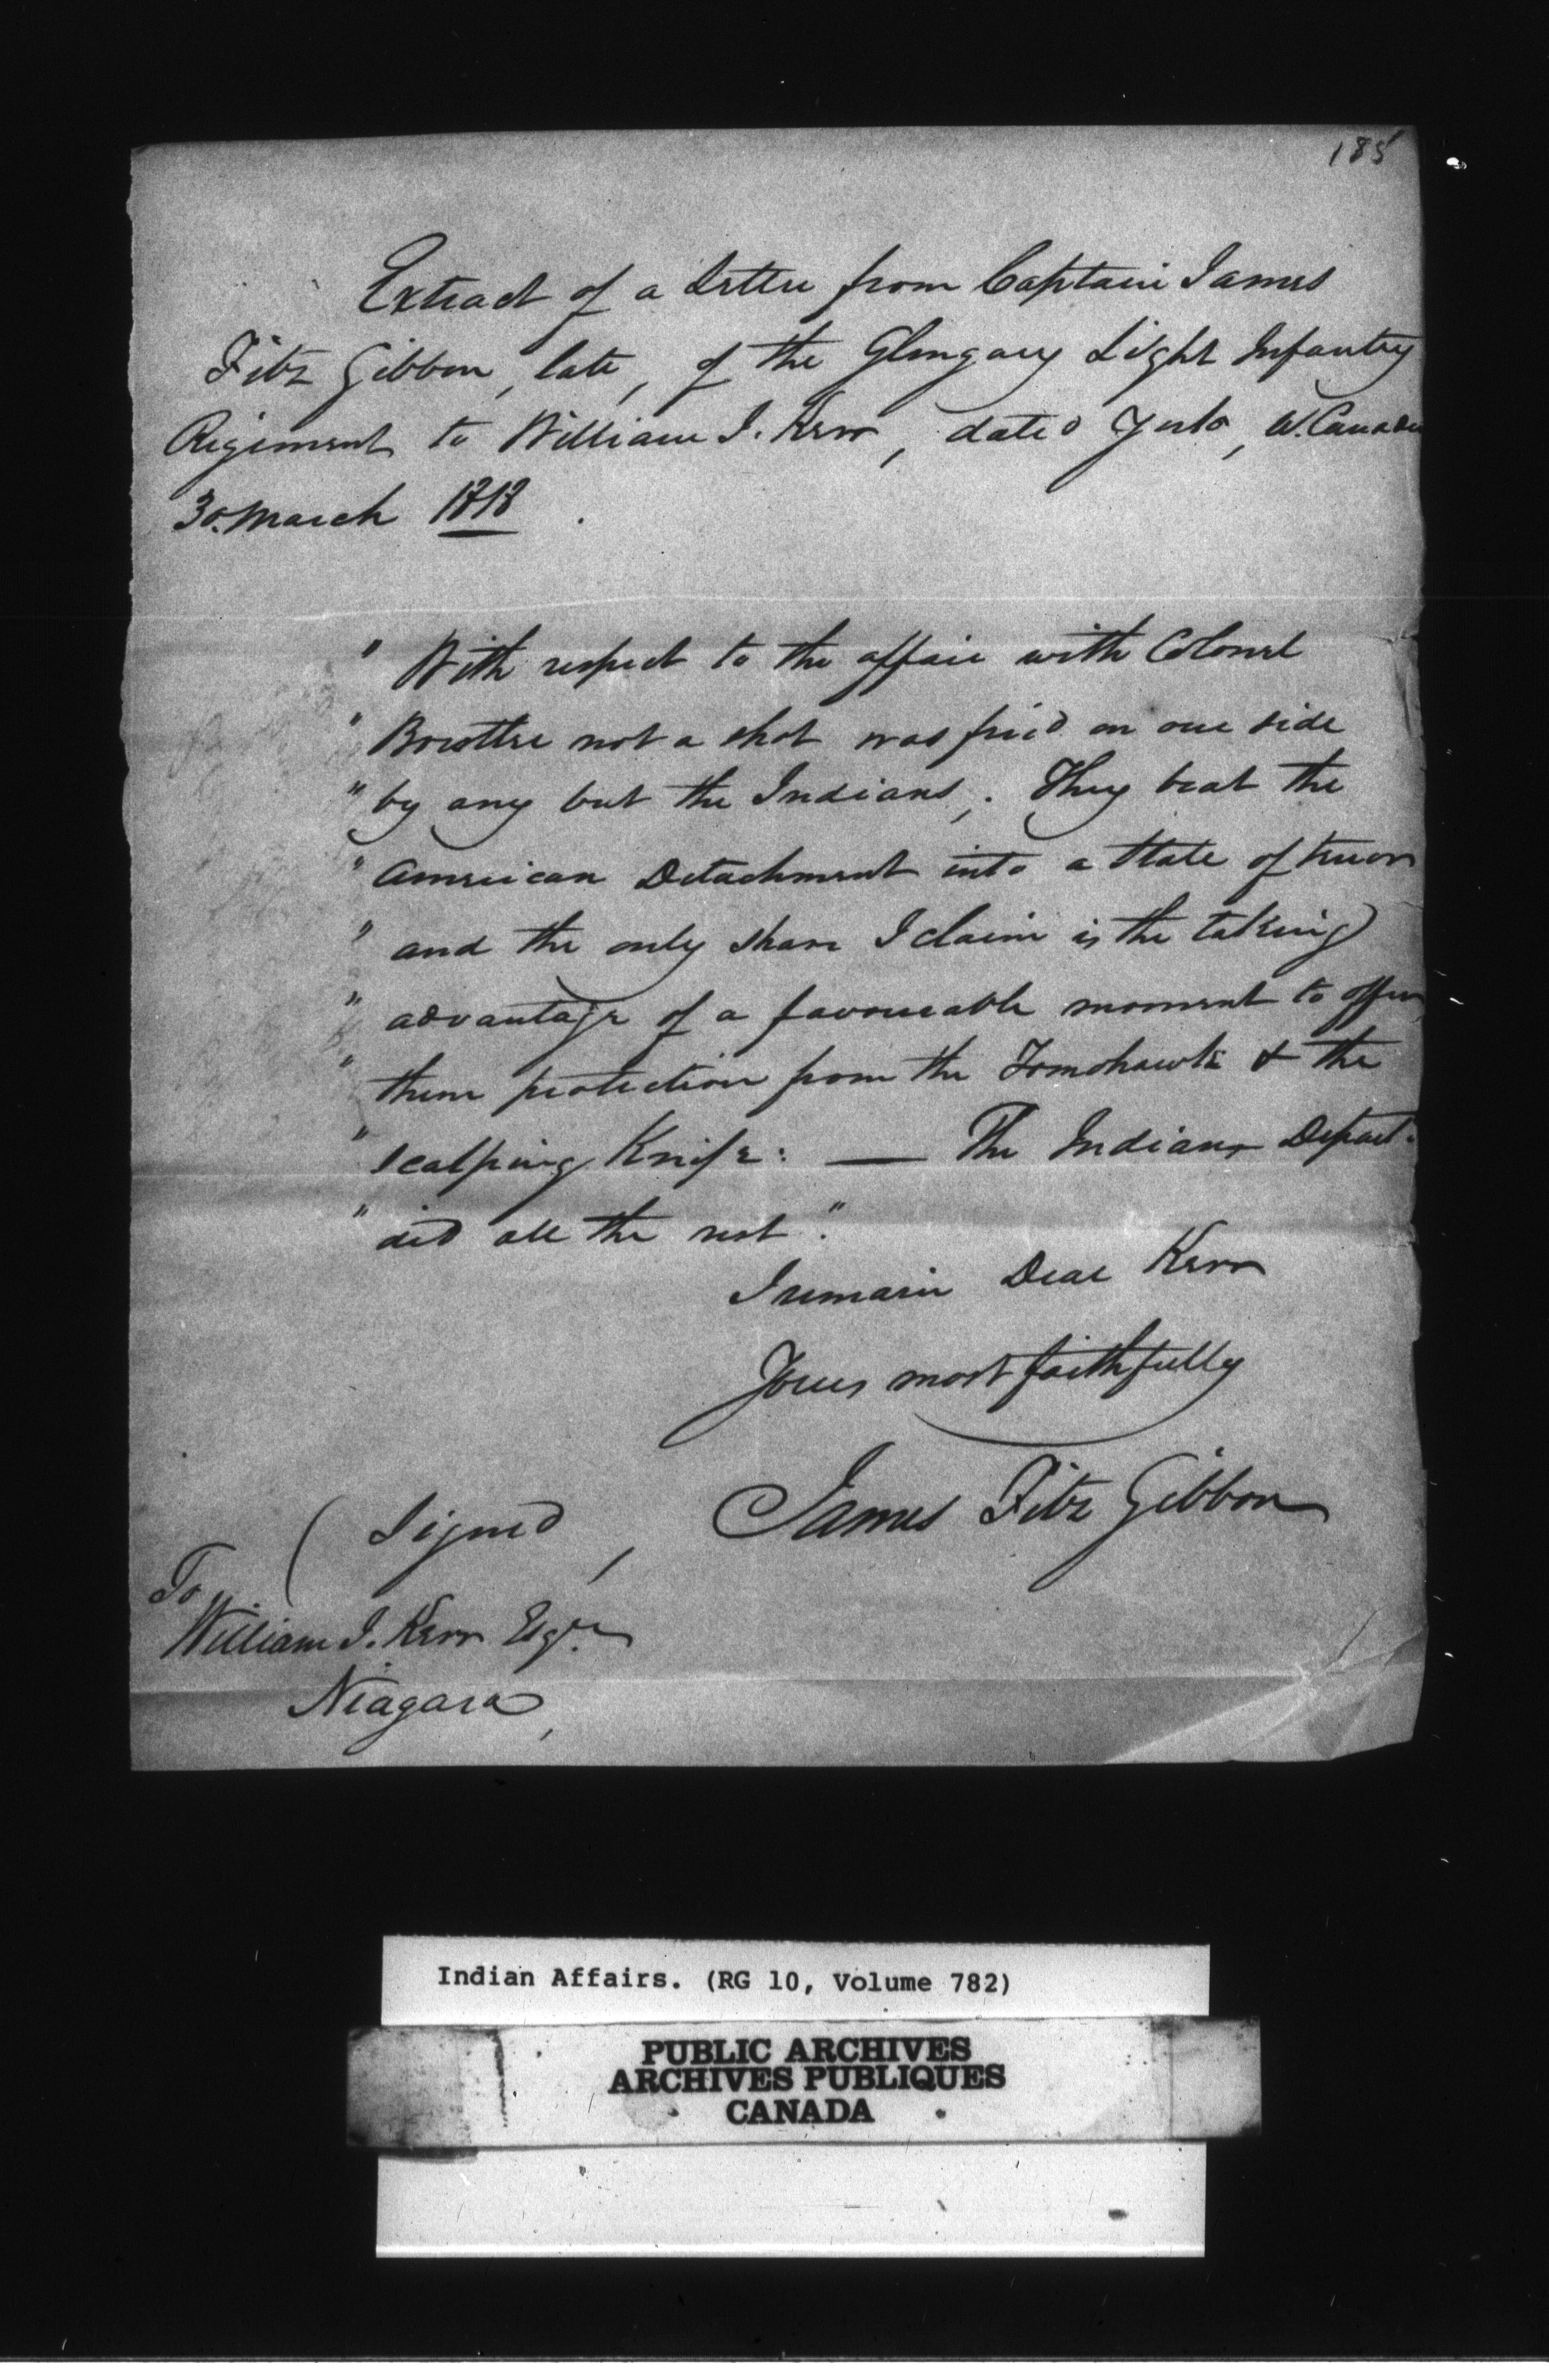 185
Extract of a Letter from Captain James
Fitz Gibbon, late, of the Glengary Light Infantry
Regiment to William J. Kerr, dated York, W. Canada
30. March 1818.
" With respect to the affair with Colonel
" Boerstler not a shot was fired on our side
" by any but the Indians,. They beat the
" American Detachment into a State of terror
" and the only share I claim is the taking
" advantage of a favourable moment to offer
" them protection from the Tomohawk & the
" scalping Knife: — The Indian Depart.
" did all the rest."
I remain Dear Kerr
Yours most faithfully
(Signed, James Fitz Gibbon
To
William J. Kerr Esqr.
Niagara,
Indian Affairs. (RG 10, Volume 782)
PUBLIC ARCHIVES
ARCHIVES PUBLIQUES
CANADA